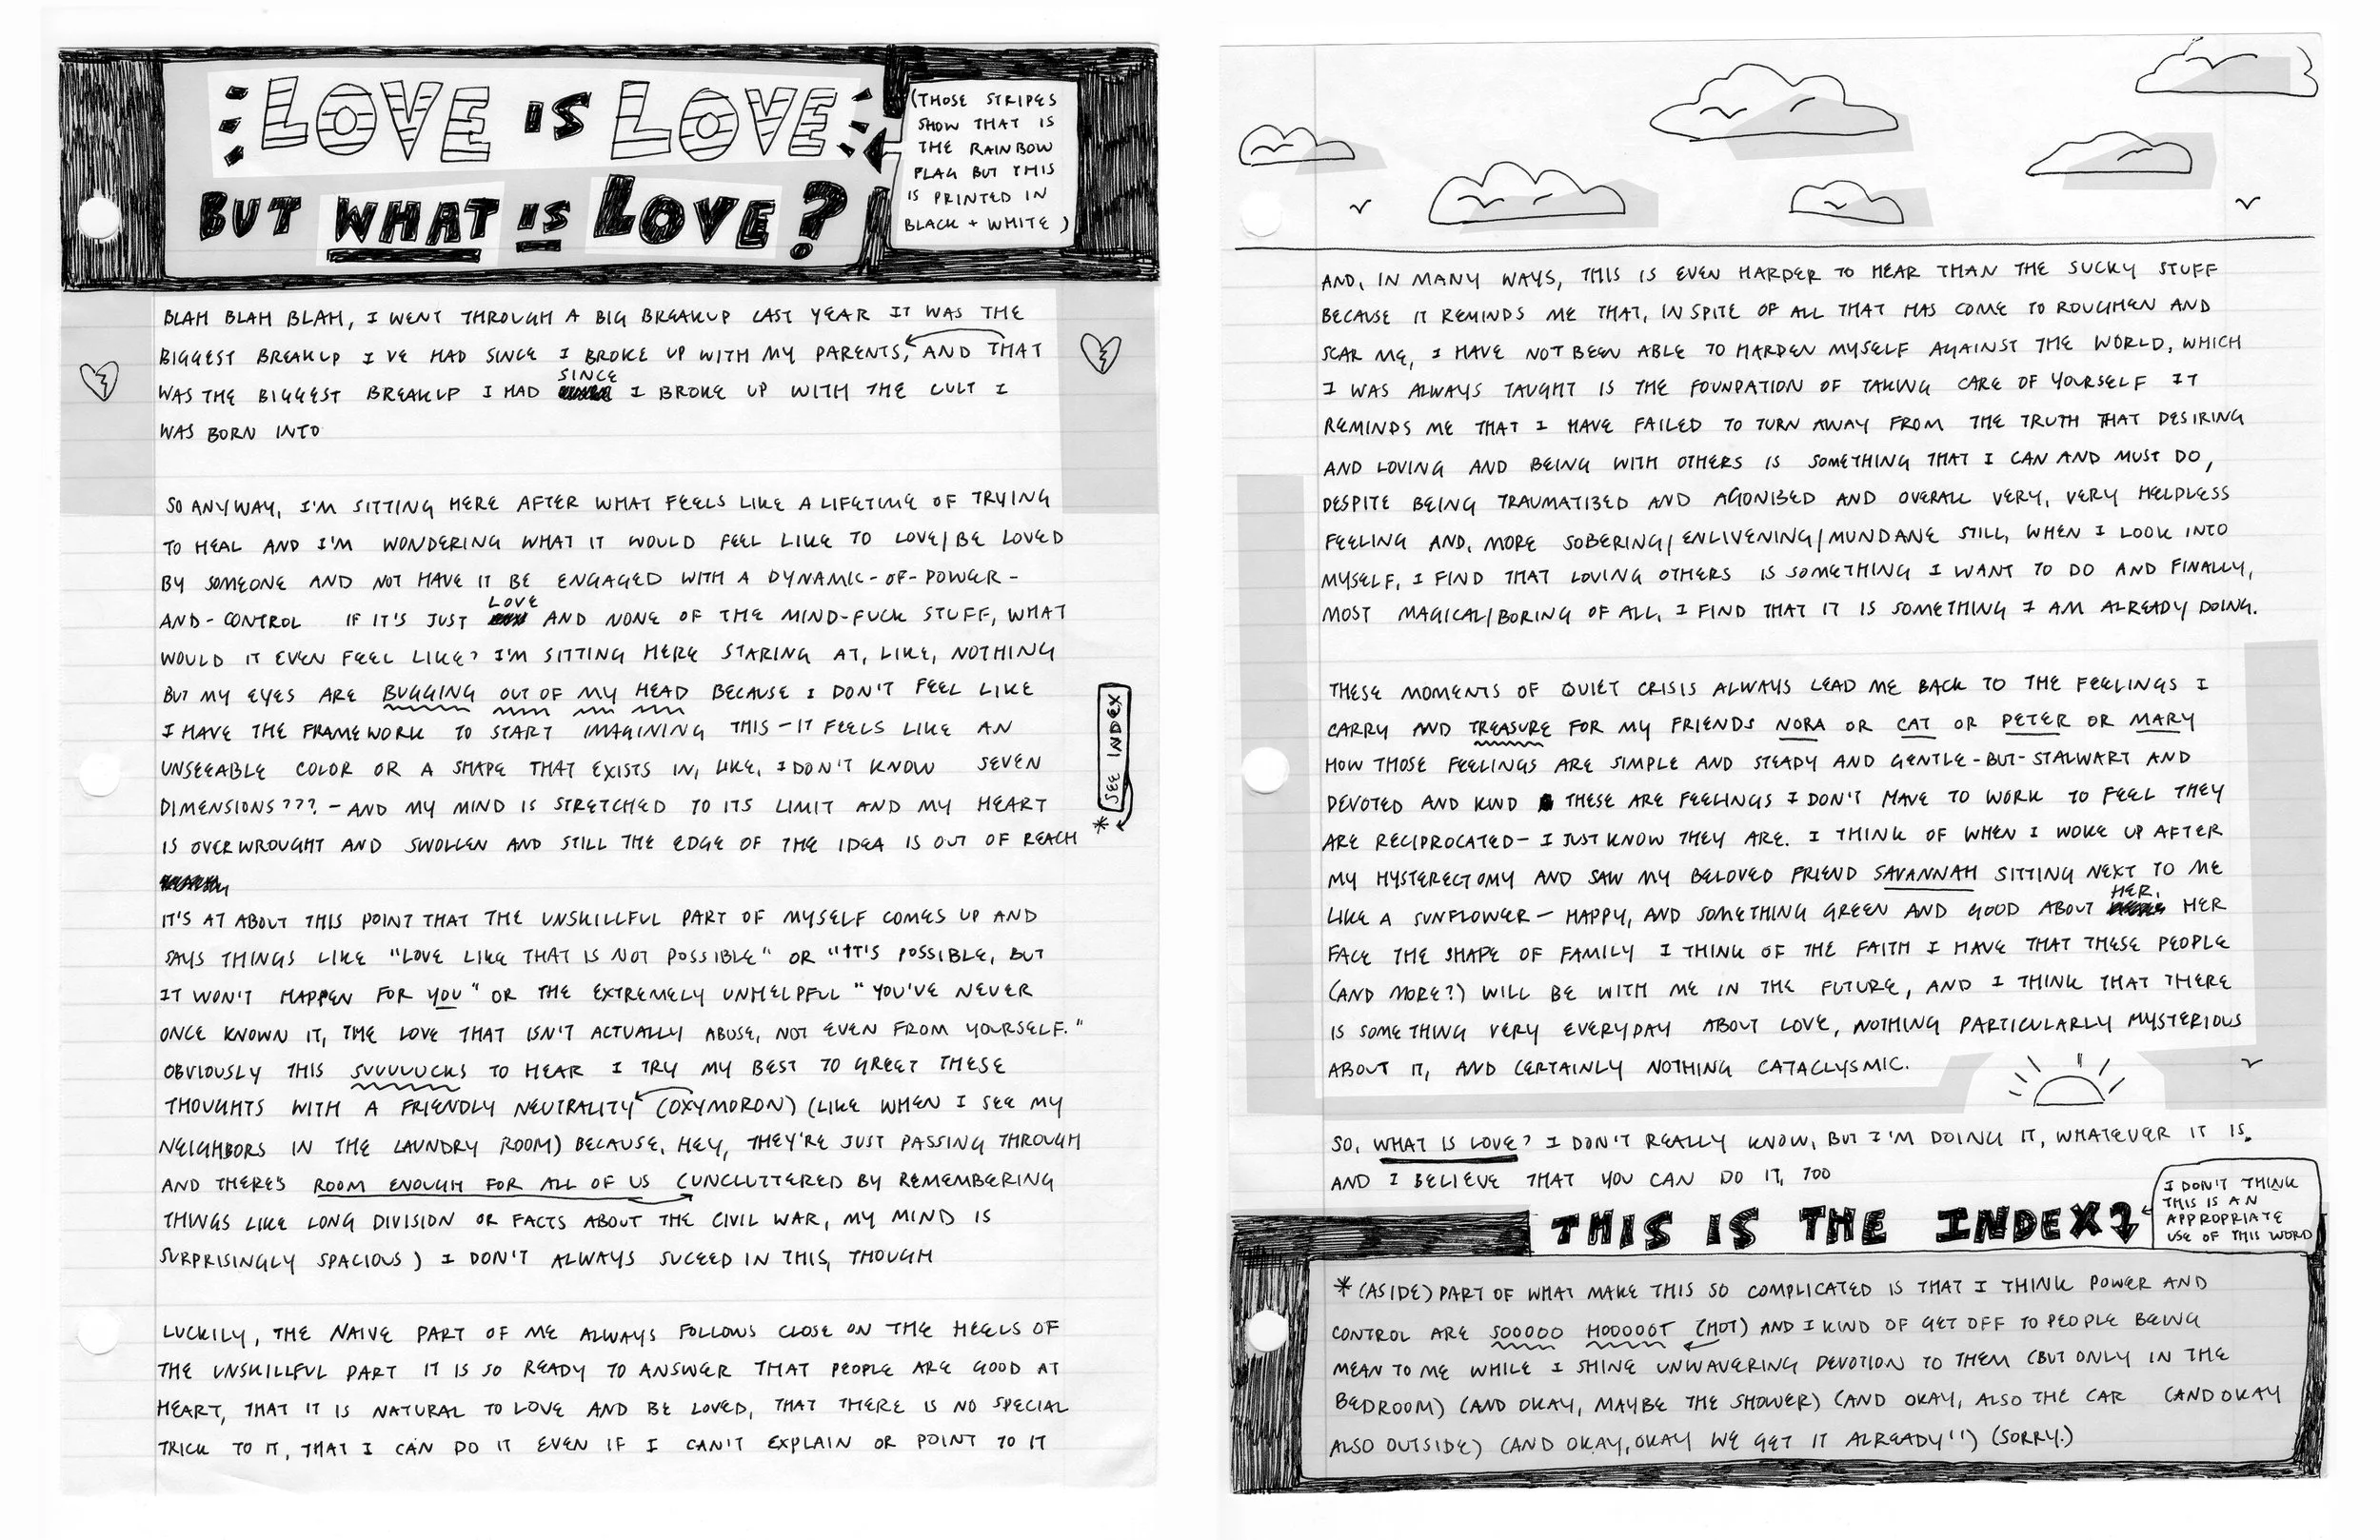 LOVE IS LOVE
BUT WHAT IS LOVE?
(THOSE STRIPES
SHOW THAT IS
THE RAINBOW
FLAG BUT THIS
IS PRINTED IN
BLACK + WHITE)
BLAH BLAH BLAH, I WENT THROUGH A BIG BREAKUP LAST YEAR IT WAS THE
BIGGEST BREAKUP I VE HAD SINCE I BROKE UP WITH MY PARENTS, AND THAT
WAS THE BIGGEST BREAKUP I HAD SINCE I BROKE UP WITH THE CULT I
WAS BORN INTO
SO ANYWAY, I'M SITTING HERE AFTER WHAT FEELS LIKE A LIFETIME OF TRYING
TO HEAL AND I'M WONDERING WHAT IT WOULD FEEL LIKE TO LOVE/BE LOVED
BY SOMEONE AND NOT HAVE IT BE ENGAGED WITH A DYNAMIC-OF-POWER-
AND-CONTROL IF IT'S JUST LOVE AND NONE OF THE MIND-FUCK STUFF, WHAT
WOULD IT EVEN FEEL LIKE? I'M SITTING HERE STARING AT, LIKE, NOTHING
BUT MY EYES ARE BUGGING OUT OF MY HEAD BECAUSE I DON'T FEEL LIKE
I HAVE THE FRAMEWORK TO START IMAGINING THIS - IT FEELS LIKE AN
UNSEEABLE COLOR OR A SHAPE THAT EXISTS IN, LIKE, I DON'T KNOW SEVEN
DIMENSIONS??? - AND MY MIND IS STRETCHED TO ITS LIMIT AND MY HEART
IS OVERWROUGHT AND SWOLLEN AND STILL THE EDGE OF THE IDEA IS OUT OF REACH *
SEE INDEX
IT'S AT ABOUT THIS POINT THAT THE UNSKILLFUL PART OF MYSELF COMES UP AND
SAYS THINGS LIKE "LOVE LIKE THAT IS NOT POSSIBLE" OR "IT'S POSSIBLE, BUT
IT WON'T HAPPEN FOR YOU" OR THE EXTREMELY UNHELPFUL "YOU'VE NEVER
ONCE KNOWN IT, THE LOVE THAT ISN'T ACTUALLY ABUSE, NOT EVEN FROM YOURSELF."
OBVIOUSLY THIS SUUUUUCKS TO HEAR I TRY MY BEST TO GREET THESE
THOUGHTS WITH A FRIENDLY NEUTRALITY (OXYMORON) (LIKE WHEN I SEE MY
NEIGHBORS IN THE LAUNDRY ROOM) BECAUSE, HEY, THEY'RE JUST PASSING THROUGH
AND THERE'S ROOM ENOUGH FOR ALL OF US (UNCLUTTERED BY REMEMBERING
THINGS LIKE LONG DIVISION OR FACTS ABOUT THE CIVIL WAR, MY MIND IS
SURPRISINGLY SPACIOUS) I DON'T ALWAYS SUCEED IN THIS, THOUGH
LUCKILY, THE NAIVE PART OF ME ALWAYS FOLLOWS CLOSE ON THE HEELS OF
THE UNSKILLFUL PART IT IS SO READY TO ANSWER THAT PEOPLE ARE GOOD AT
HEART, THAT IT IS NATURAL TO LOVE AND BE LOVED, THAT THERE IS NO SPECIAL
TRICK TO IT, THAT I CAN DO IT EVEN IF I CAN'T EXPLAIN OR POINT TO IT
AND, IN MANY WAYS, THIS IS EVEN HARDER TO HEAR THAN THE SUCKY STUFF
BECAUSE IT REMINDS ME THAT, IN SPITE OF ALL THAT HAS COME TO ROUGHEN AND
SCAR ME, I HAVE NOT BEEN ABLE TO HARDEN MYSELF AGAINST THE WORLD, WHICH
I WAS ALWAYS TAUGHT IS THE FOUNDATION OF TAKING CARE OF YOURSELF IT
REMINDS ME THAT I HAVE FAILED TO TURN AWAY FROM THE TRUTH THAT DESIRING
AND LOVING AND BEING WITH OTHERS IS SOMETHING THAT I CAN AND MUST DO,
DESPITE BEING TRAUMATISED AND AGONISED AND OVERALL VERY, VERY HELPLESS
FEELING AND, MORE SOBERING/ENLIVENING/MUNDANE STILL, WHEN I LOOK INTO
MYSELF, I FIND THAT LOVING OTHERS IS SOMETHING I WANT TO DO AND FINALLY,
MOST MAGICAL/BORING OF ALL, I FIND THAT IT IS SOMETHING I AM ALREADY DOING.
THESE MOMENTS OF QUIET CRISIS ALWAYS LEAD ME BACK TO THE FEELINGS I
CARRY AND TREASURE FOR MY FRIENDS NORA OR CAT OR PETER OR MARY
HOW THOSE FEELINGS ARE SIMPLE AND STEADY AND GENTLE-BUT-STALWART AND
DEVOTED AND KIND THESE ARE FEELINGS I DON'T HAVE TO WORK TO FEEL THEY
ARE RECIPROCATED - I JUST KNOW THEY ARE. I THINK OF WHEN I WOKE UP AFTER
MY HYSTERECTOMY AND SAW MY BELOVED FRIEND SAVANNAH SITTING NEXT TO ME
LIKE A SUNFLOWER - HAPPY, AND SOMETHING GREEN AND GOOD ABOUT HER, HER
FACE THE SHAPE OF FAMILY I THINK OF THE FAITH I HAVE THAT THESE PEOPLE
(AND MORE?) WILL BE WITH ME IN THE FUTURE, AND I THINK THAT THERE
IS SOMETHING VERY EVERYDAY ABOUT LOVE, NOTHING PARTICULARLY MYSTERIOUS
ABOUT IT, AND CERTAINLY NOTHING CATACLYSMIC.
SO, WHAT IS LOVE? I DON'T REALLY KNOW, BUT I'M DOING IT, WHATEVER IT IS.
AND I BELIEVE THAT YOU CAN DO IT, TOO
THIS IS THE INDEX
I DON'T THINK
THIS IS AN
APPROPRIATE
USE OF THIS WORD
* (ASIDE) PART OF WHAT MAKE THIS SO COMPLICATED IS THAT I THINK POWER AND
CONTROL ARE SOOOOO HOOOOOT (HOT) AND I KIND OF GET OFF TO PEOPLE BEING
MEAN TO ME WHILE I SHINE UNWAVERING DEVOTION TO THEM (BUT ONLY IN THE
BEDROOM) (AND OKAY, MAYBE THE SHOWER) (AND OKAY, ALSO THE CAR (AND OKAY
ALSO OUTSIDE) (AND OKAY, OKAY WE GET IT ALREADY!!) (SORRY.)